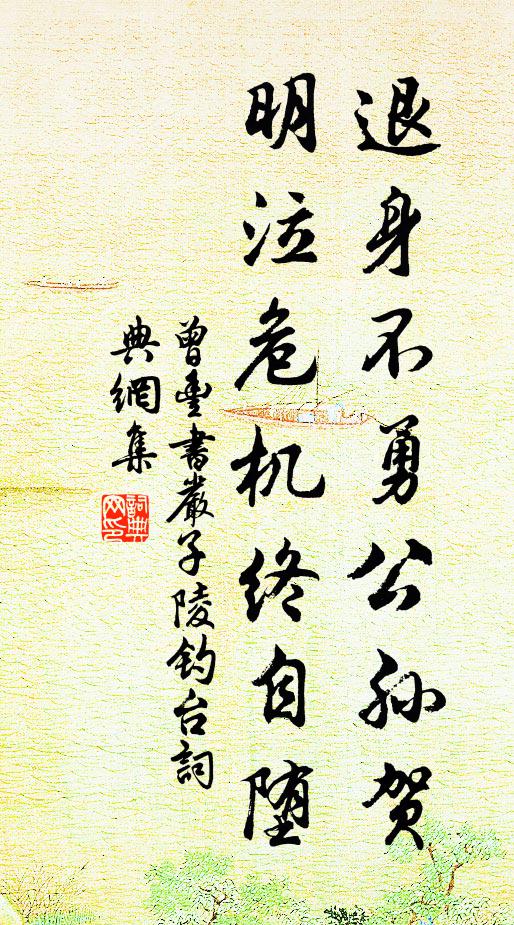 退身不勇公孙贺
明泣危机终自堕
曾豐書嚴子陵钓台詞
典網集
詞典网印